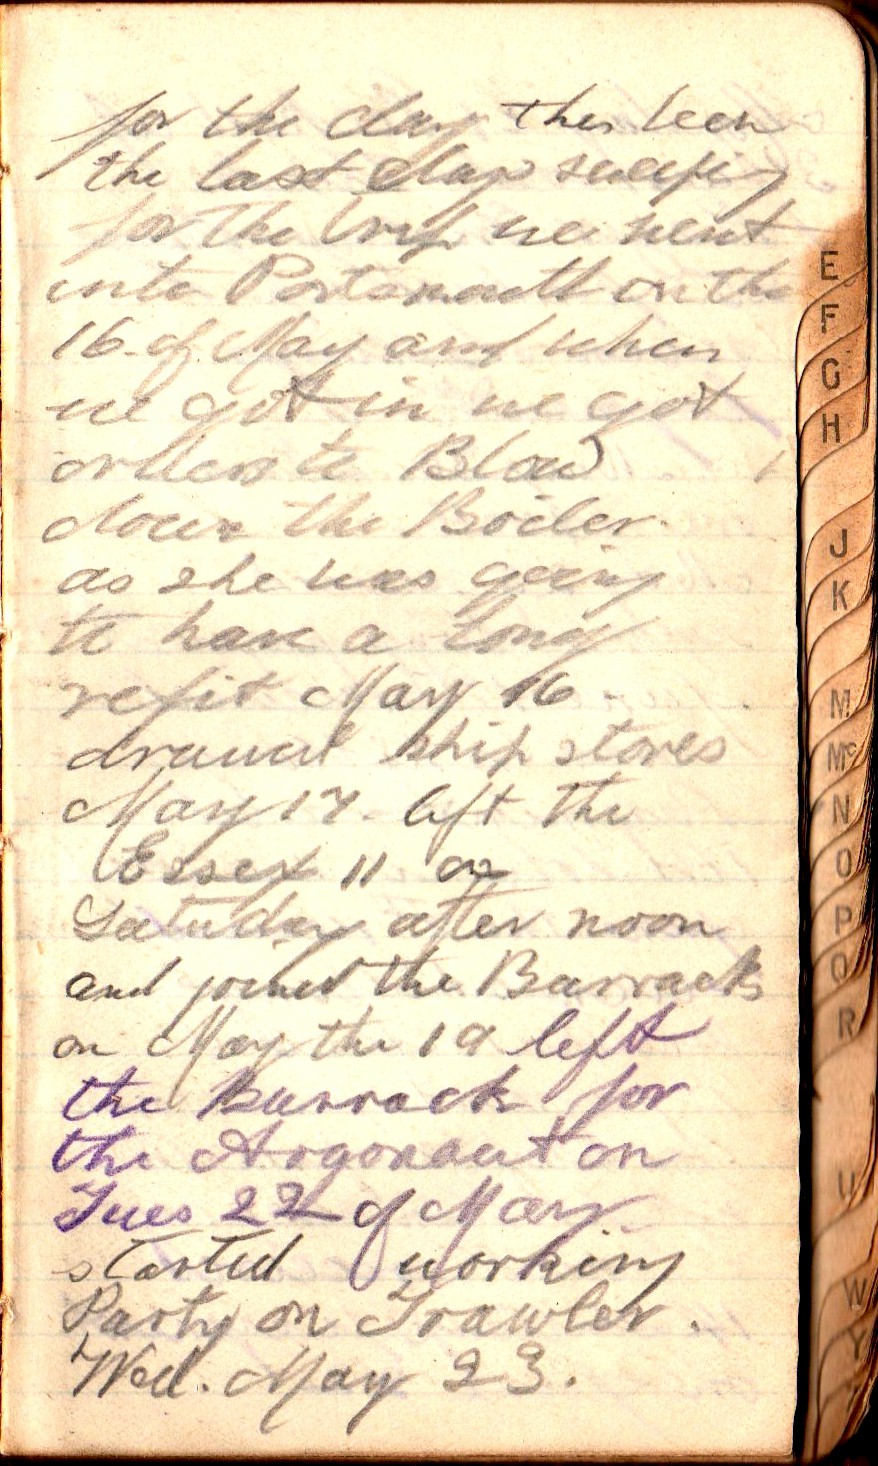 for the day this been
the last day sweeping
for the trip we went
into Portsmouth on the
16 of May and when
we got in we got
orders to Blow
down the Boiler.
as she was going
to have a long
refit May 16.
drawed ship stores
May 17. left the
Essex 11 on
Satuday after noon
and joined the Barracks
on May the 19 left
the Barrack for
the Argonaut on
Tues 22 of May.
started working
Party on Trawler.
Wed. May 23.
E
F
G
H
J
K
M
Mc
N
O
P
Q
R
U
W
Y